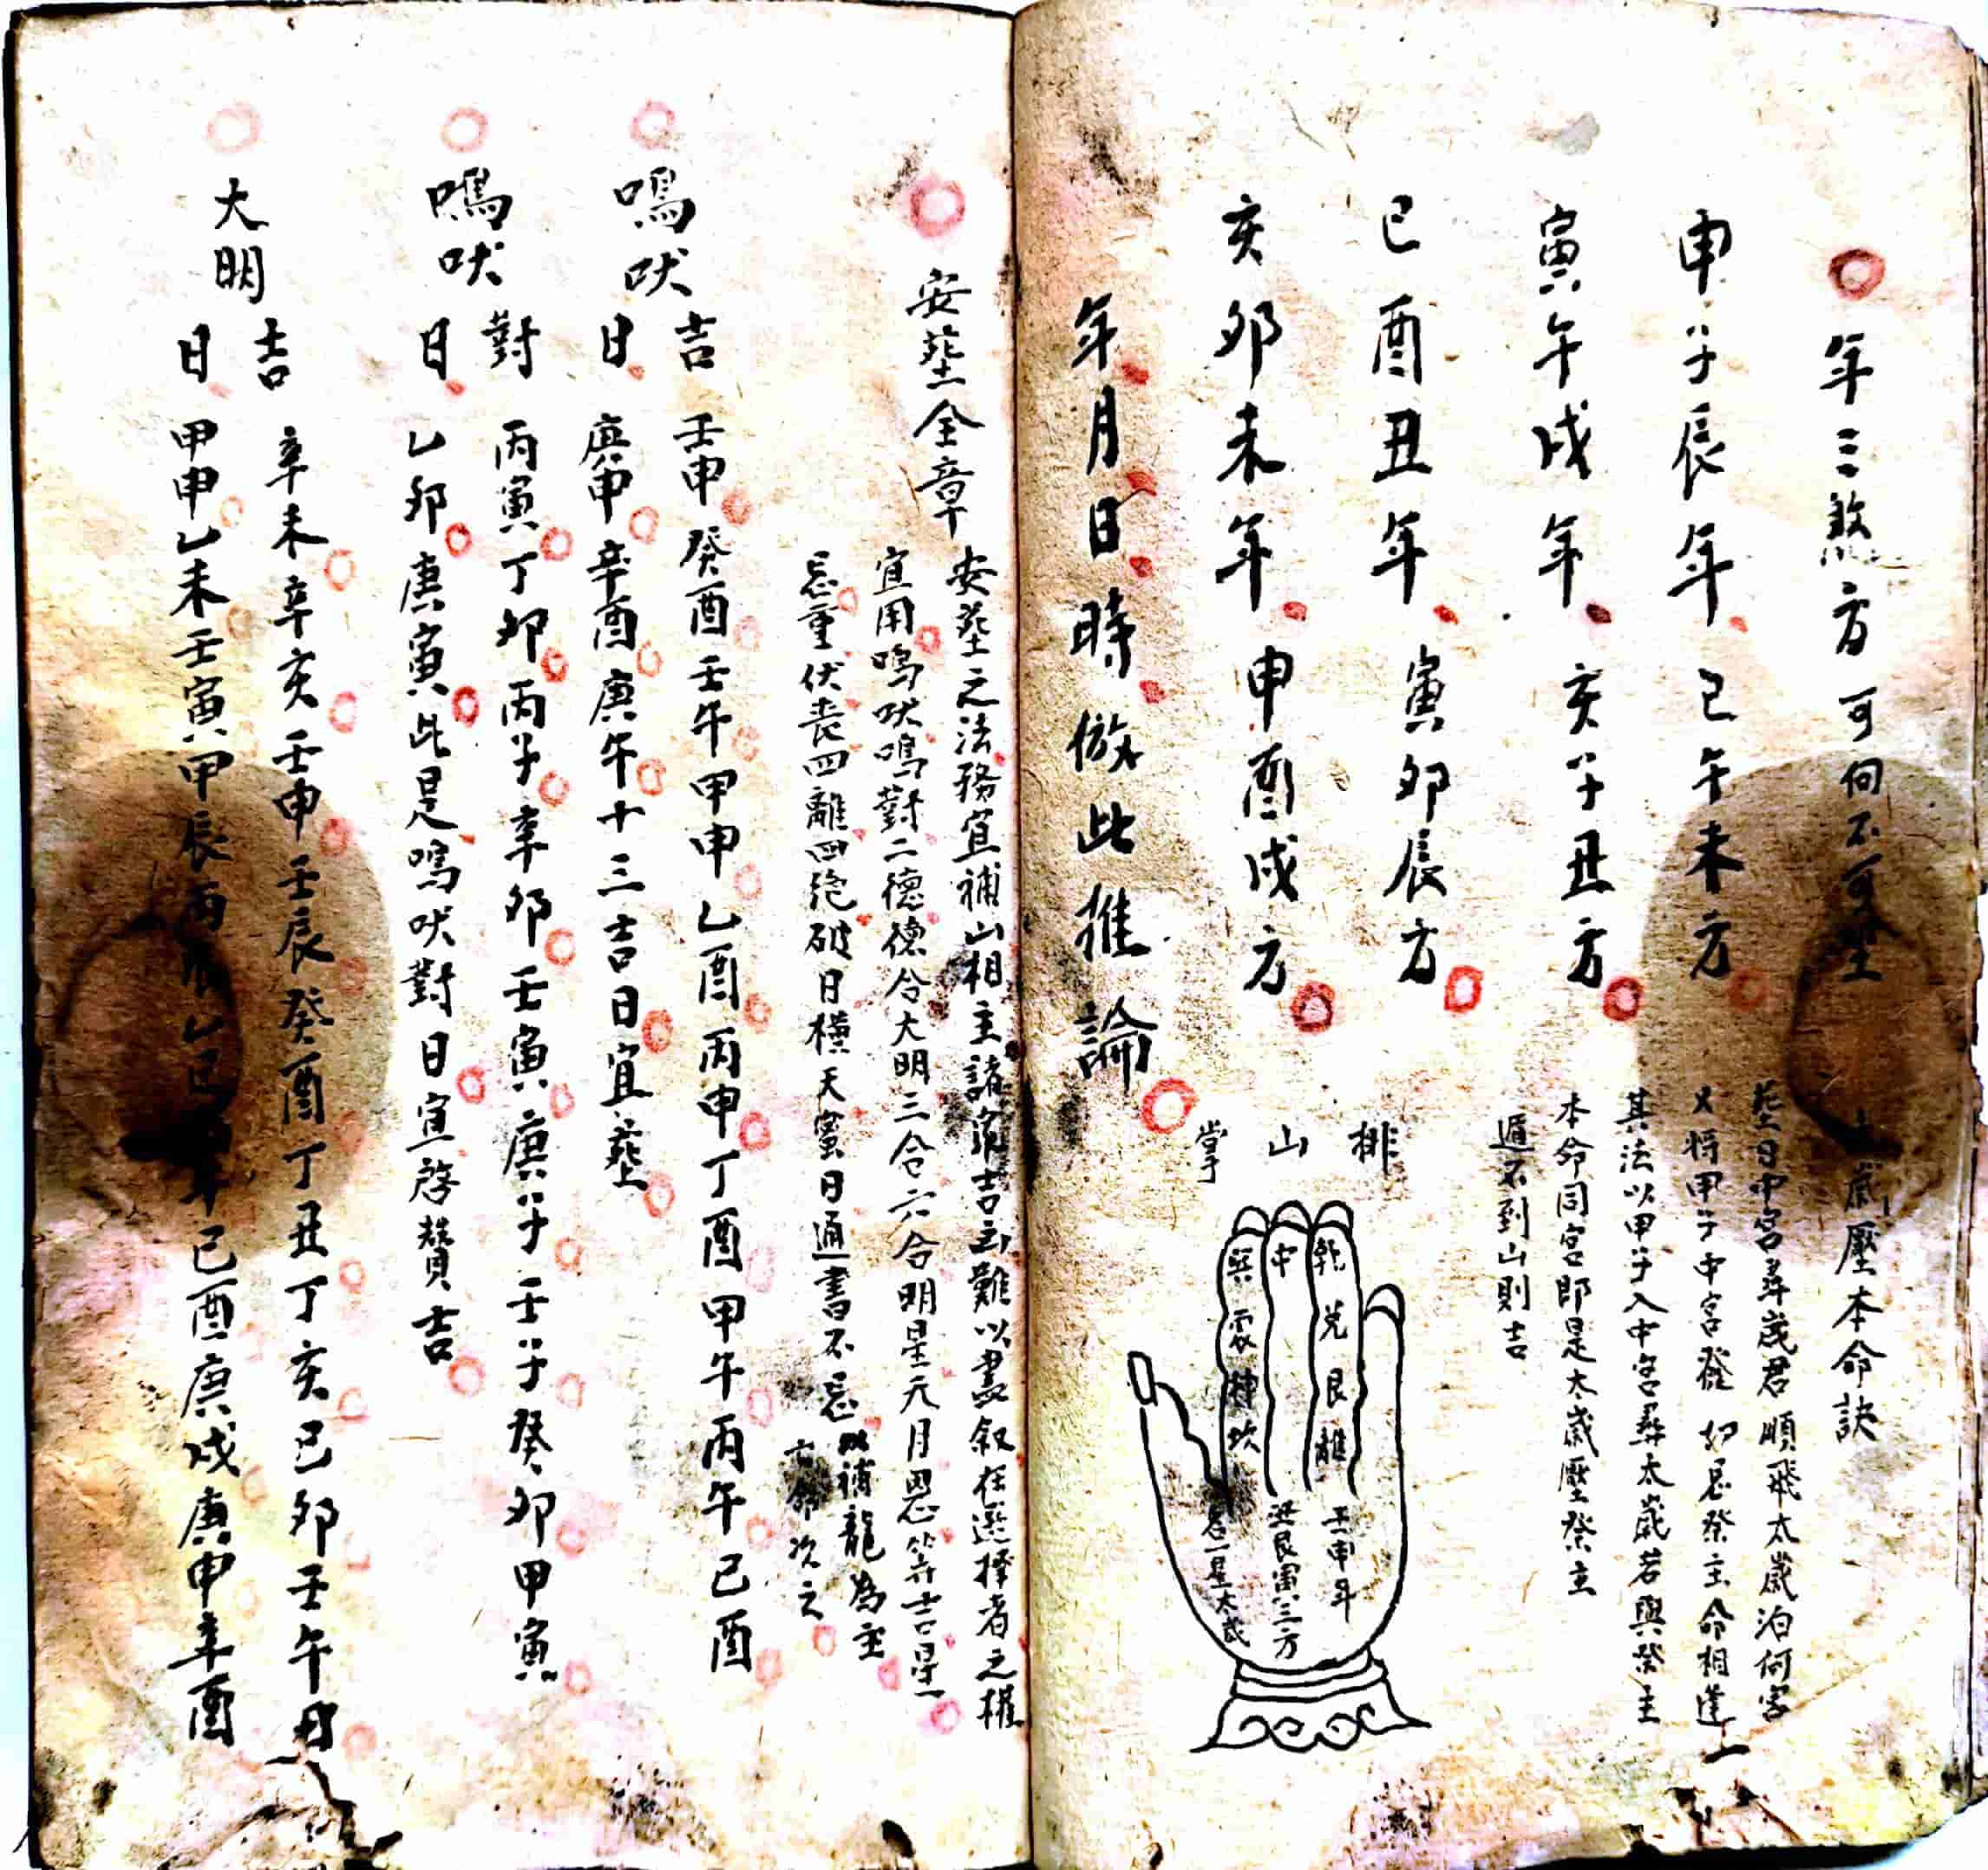 年三煞方 可向不可坐
申子辰年 巳午未方
寅午戌年 亥子丑方
巳酉丑年 寅卯辰方
亥卯未年 申酉戌方
年月日時倣此推論
歲壓本命訣
葬日中宮尋歲君順飛太歲泊何宮
又將甲子中宮發如忌祭主命相逢
其法以甲子入中宮尋太歲若與祭主
本命同宮即是太歲壓祭主
遁不到山則吉
排山掌
乾兌艮離
中
巽震坤坎
壬申年
艮寅三方
名一星太歲
安葬全章
安葬之法務宜補山相主諸家吉凶難以盡叙在選擇者之權
宜用鳴吠鳴對二德德合大明三合六合明星元月恩等吉星
忌重伏喪四離四絕破日橫天寡日通書不忌 補龍為主
亡命次之
鳴吠吉日
壬申癸酉壬午甲申乙酉丙申丁酉甲午丙午己酉
庚申辛酉庚午十三吉日宜葬
鳴吠對日
丙寅丁卯丙子辛卯壬寅庚子壬子癸卯甲寅
乙卯庚寅此是鳴吠對日宜啓攢吉
大明吉日
辛未辛亥壬申壬辰癸酉丁丑丁亥己卯壬午丑
甲申乙未壬寅甲辰丙 乙巳 己酉庚戌庚申辛酉